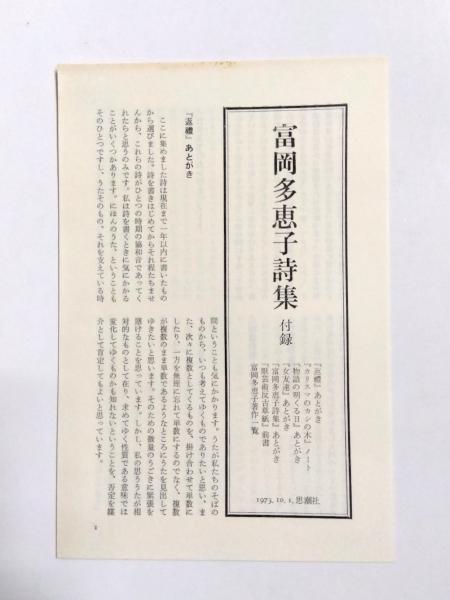 富岡多恵子詩集
付録
『返禮』あとがき
『カリスマのカシの木』ノート
『物語の明くる日』あとがき
『女友達』あとがき
『富岡多恵子詩集』あとがき
『厭芸術反古草紙』前書
富岡多恵子著作一覧
1973. 10. 1, 思潮社
『返禮』あとがき
ここに集めました詩は現在まで一年以内に書いたもの
から選びました。詩を書きはじめてからそれ程たちませ
んから、これらの詩がひとつの時期の協和音であってく
れたらと思うのみです。私は詩を書くときに気にかかる
ことがいくつかあります。にほんのうた、ということも
そのひとつですし、うたそのもの、それを支えている時
間ということも気にかかります。うたが私たちのそばの
ものから、いつも考えてゆくものでありたいと思い、ま
た、次々に複数としてくるものを、掛け合わせて単数に
したり、一方を無理に忘れて単数にするのでなく、複数
が複数のまま単数であるようなところにうたを見出して
ゆきたいと思います。そのための微量のうごきに緊張を
賭けることを思っています。しかし、私の思ううたが相
対的なものとして在り、求めてゆく性質である意味では
変化してゆくものかも知れないということを、否定を媒
介として肯定してもよいと思っています。
1